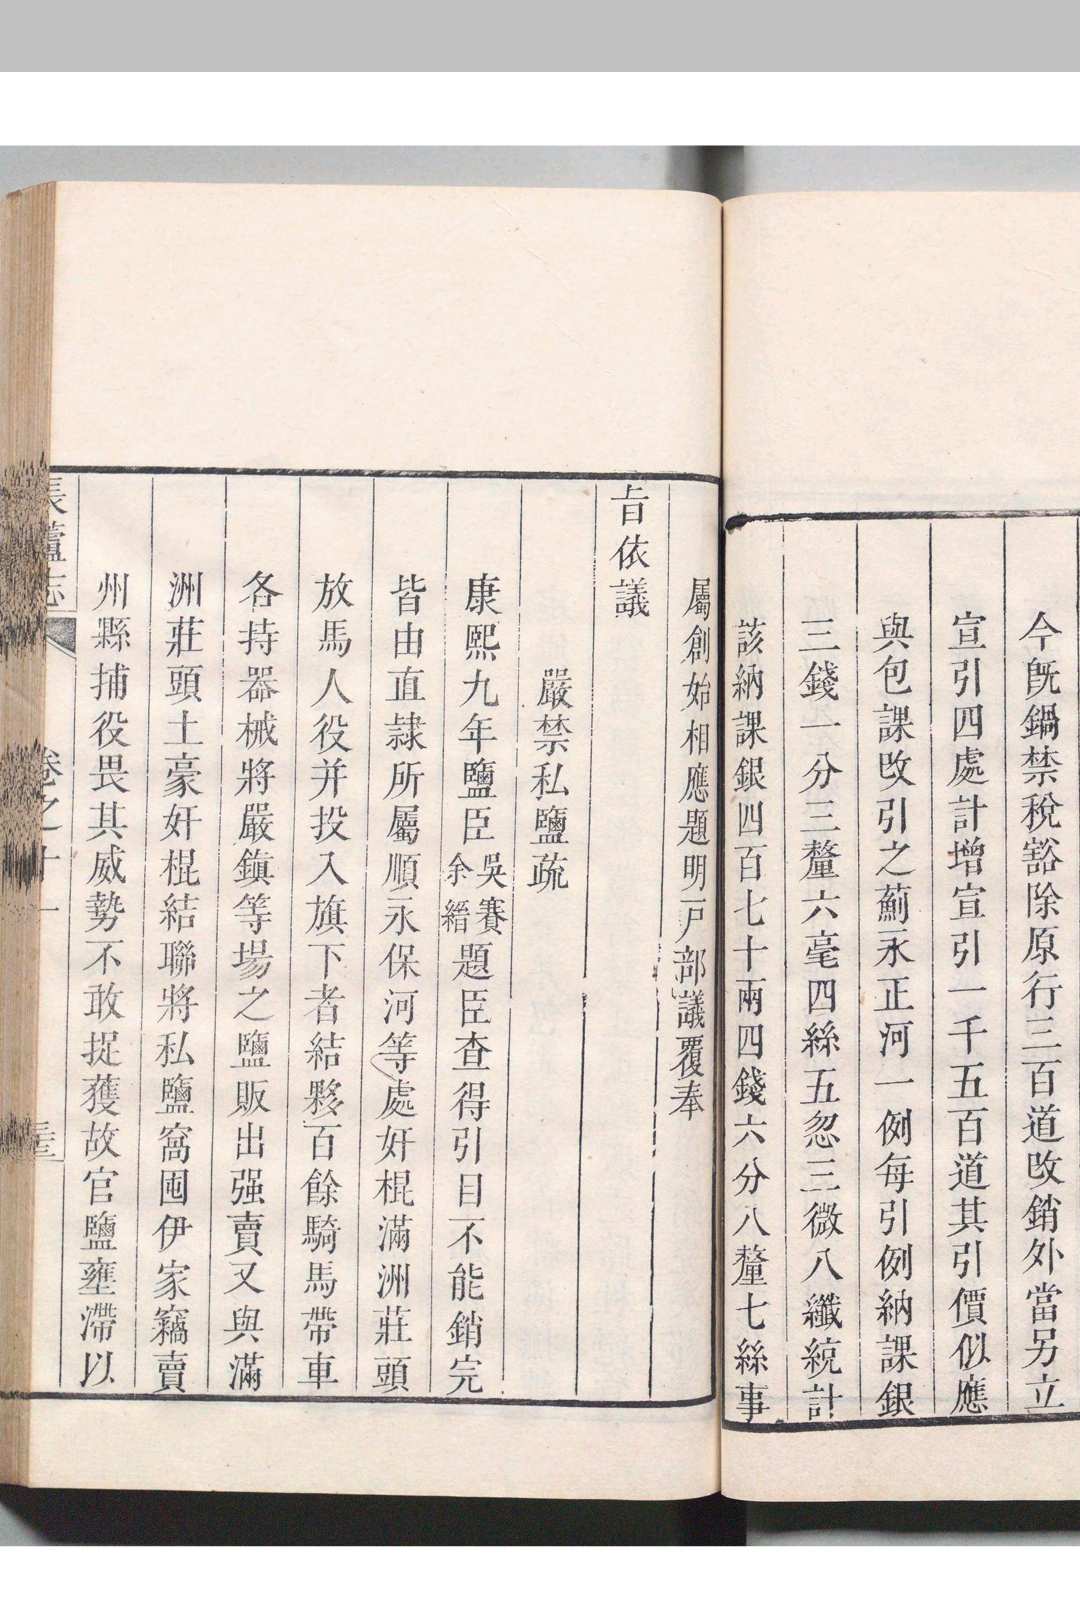 今旣鍋禁稅豁除原行三百道改銷外當另立
宣引四處計增宣引一千五百道其引價似應
與包課改引之薊永正河一例每引例納課銀
三錢一分三釐六毫四絲五忽三微八纖統計
該納課銀四百七十兩四錢六分八釐七絲事
屬創始相應題明戸部議覆奉
旨依議
嚴禁私鹽疏
康熙九年鹽臣吳賽余縉題臣查得引目不能銷完
皆由直隷所屬順永保河等處奸棍滿洲莊頭
放馬人役并投入旗下者結夥百餘騎馬帶車
各持器械將嚴鎮等場之鹽販出强賣又與滿
洲莊頭土豪奸棍結聯將私鹽窩囤伊家竊賣
州縣捕役畏其威勢不敢捉獲故官鹽壅滯以
長蘆志 卷之十一 三三